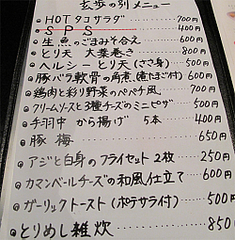 玄歩の別メニュー
HOTタコサラダ ・・・ 700円
SPS ・・・・・ 400円
生魚のごまみそ合え ・・・ 600円
とり天 大葉巻き ・・・ 800円
ヘルシーとり天(ささ身) ・・・ 500円
豚バラ軟骨の角煮(煮たまご付) ・・ 600円
鶏肉と彩り野菜のペペ千風 ・・・ 700円
クリームソースと3種チーズのミニピザ ・・ 500円
手羽中 から揚げ 5本 ・・・ 400円
豚梅 650円
アジと白身のフライセット 2枚 250円
カマンベールチーズの和風仕立て ・・ 600円
ガーリックトースト(ポテサラ付) ・・ 500円
とりめし雑炊 ・・・・ 850